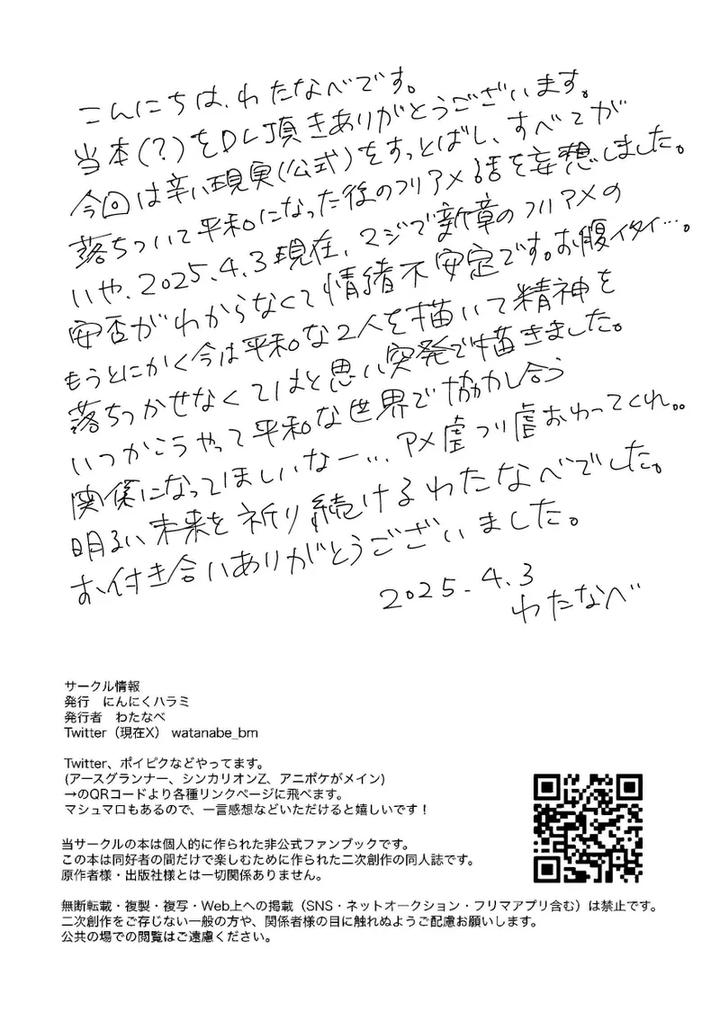 こんにちは、わたなべです。
当本(?)をDL頂きありがとうございます。
今回は辛い現実(公式)をすっとばし、すべてが
落ちついて平和になった後のフリアメ話を妄想しました。
いや、2025.4.3現在、マジで新章のフリアメの
安否がわからなくて情緒不安定です。お腹イタイ…。
もうとにかく今は平和な2人を描いて精神を
落ちつかせなくてはと思い突発で描きました。
いつかこうやって平和な世界で協力し合う
関係になってほしいなー…アメ虐フリ虐おわってくれ。。
明るい未来を祈り続けるわたなべでした。
お付き合いありがとうございました。
2025.4.3
わたなべ
サークル情報
発行 にんにくハラミ
発行者 わたなべ
Twitter（現在X） watanabe_bm
Twitter、ポイピクなどやってます。
(アースグランナー、シンカリオンZ、アニポケがメイン)
→のQRコードより各種リンクページに飛べます。
マシュマロもあるので、一言感想などいただけると嬉しいです！
当サークルの本は個人的に作られた非公式ファンブックです。
この本は同好者の間だけで楽しむために作られた二次創作の同人誌です。
原作者様・出版社様とは一切関係ありません。
無断転載・複製・複写・Web上への掲載（SNS・ネットオークション・フリマアプリ含む）は禁止です。
二次創作をご存じない一般の方や、関係者様の目に触れぬようご配慮お願いします。
公共の場での閲覧はご遠慮ください。